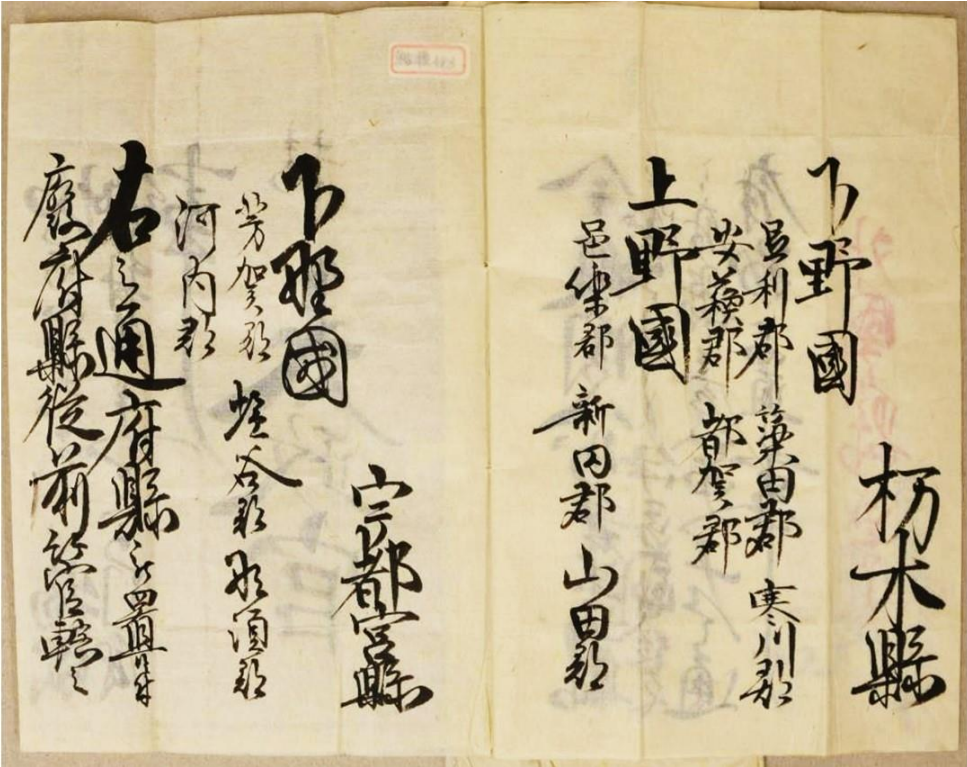 杤木縣
下野國
足利郡　簗田郡　寒川郡
安蘓郡　都賀郡
上野國
邑樂郡　新田郡　山田郡
宇都宮縣
下野國
芳賀郡　塩谷郡　那須郡
河内郡
右之通府縣被置候条
廢府縣従前管轄之